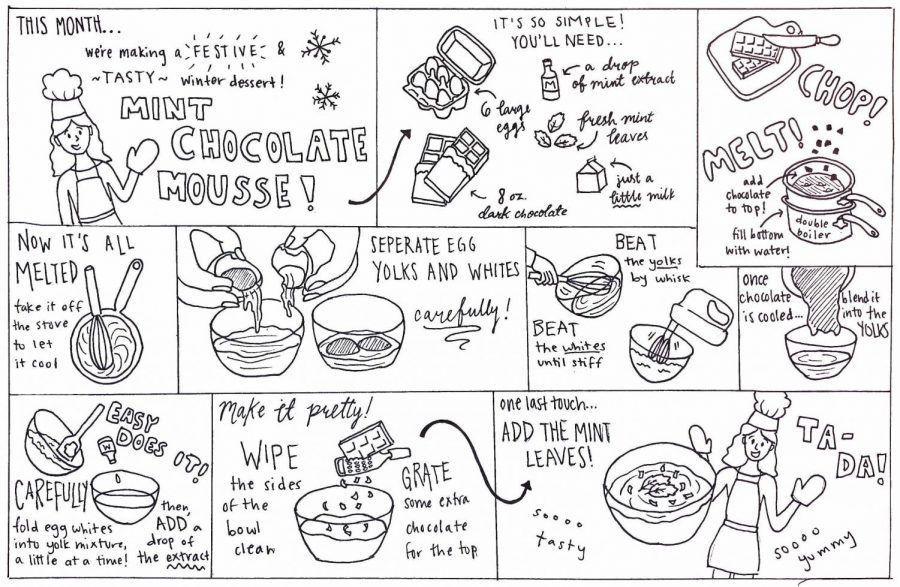 THIS MONTH...
we're making a FESTIVE &
~TASTY~ winter dessert!
MINT
CHOCOLATE
MOUSSE!
IT'S SO SIMPLE!
YOU'LL NEED...
6 large
eggs
M
a drop
of mint extract
fresh mint
leaves
8 oz.
dark chocolate
just a
little milk
CHOP!
MELT!
add
chocolate
to top!
fill bottom
with water!
double
boiler
NOW IT'S ALL
MELTED
take it off
the stove
to let
it cool
SEPERATE EGG
YOLKS AND WHITES
carefully!
BEAT
the yolks
by whisk
BEAT
the whites
until stiff
once
chocolate
is cooled...
blend it
into the
YOLKS
EASY
DOES
IT!
CAREFULLY
fold egg whites
into yolk mixture,
a little at a time!
then,
ADD a
drop of
the extract
Make it pretty!
WIPE
the sides
of the
bowl
clean
GRATE
some extra
chocolate
for the top
one last touch...
ADD THE MINT
LEAVES!
soooo
tasty
TA-
DA!
soooo
yummy